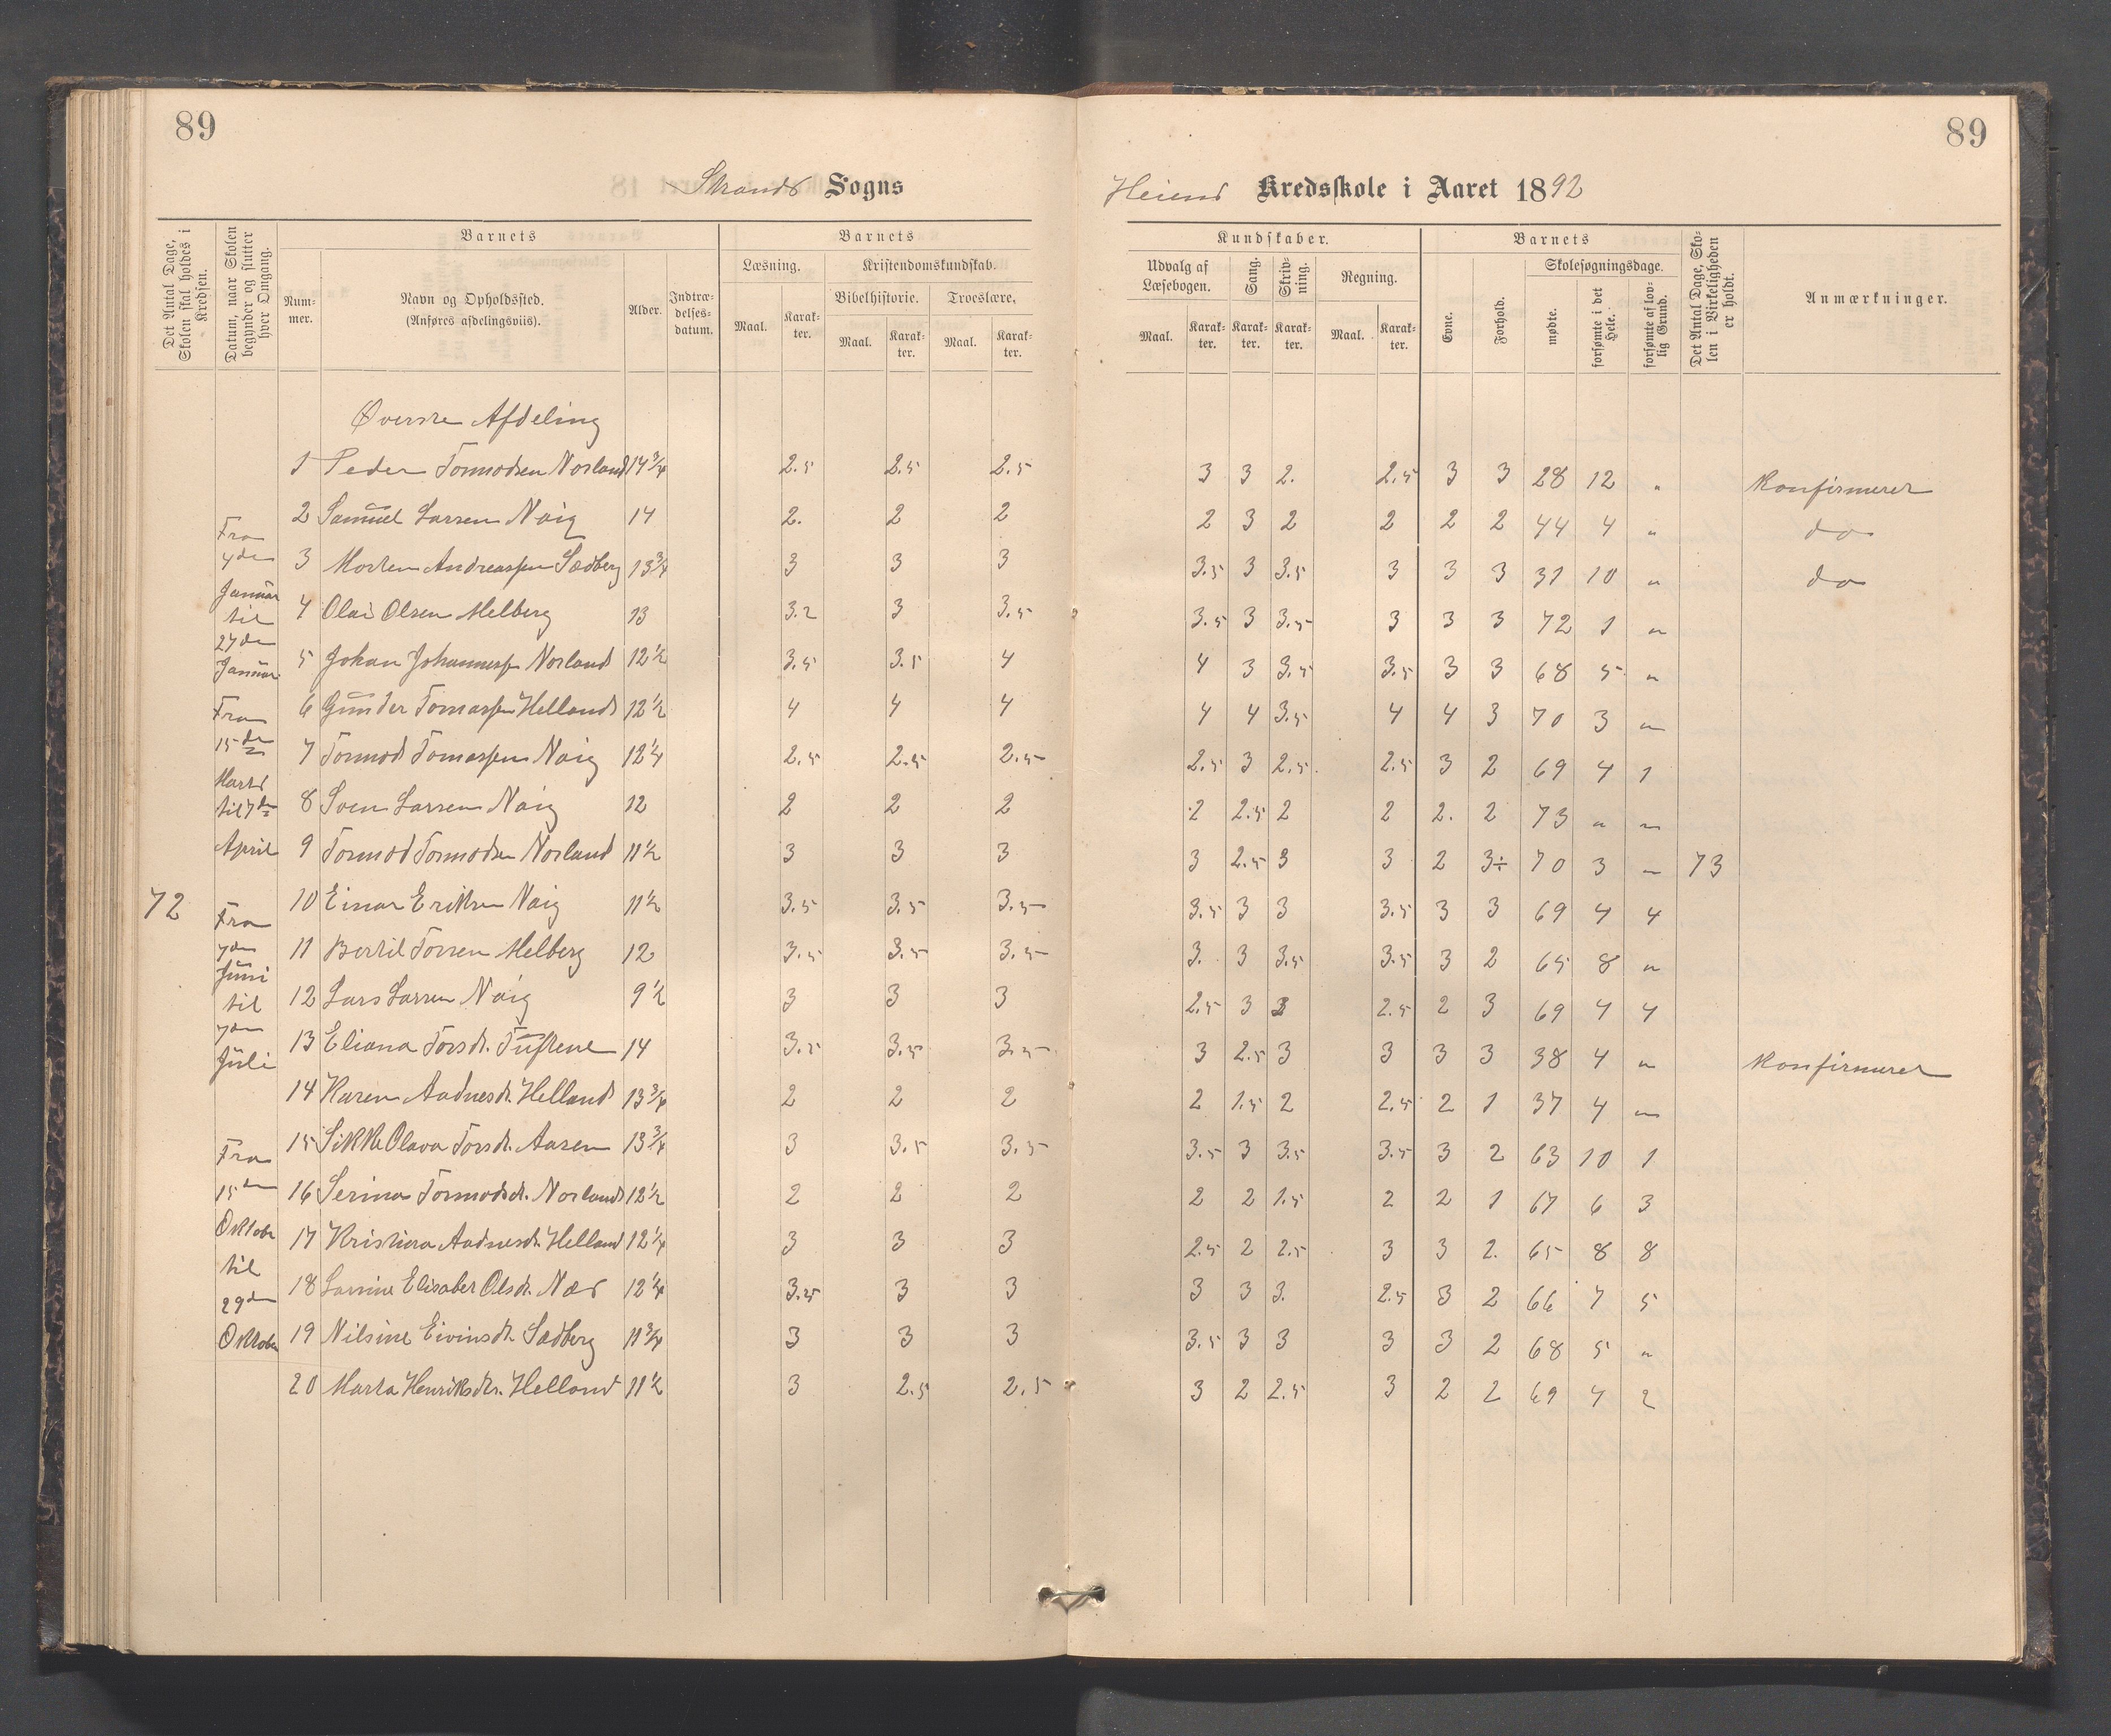 89
89
Strands Sogns
Heiens Kredsskole i Aaret 1892
Det Antal Dage, Skolen skal holdes i Kredsen.
Datum, naar Skolen begynder og slutter hver Omgang.
Barnets
Num-mer.
Navn og Opholdssted.
(Anføres afdelingsviis).
Alder.
Indtræ-delses-datum.
Barnets
Læsning.
Maal.
Karak-ter.
Kristendomskundskab.
Bibelhistorie.
Maal.
Karak-ter.
Troeslære.
Maal.
Karak-ter.
Kundskaber.
Udvalg af Læsebogen.
Maal.
Karak-ter.
Sang.
Karak-ter.
Skriv-ning.
Karak-ter.
Regning.
Maal.
Karak-ter.
Barnets
Evne.
Forhold.
Skolesøgningsdage.
mødte.
forsømte i det Hele.
forsømte af lov-lig Grund.
Det Antal Dage, Sko-len i Virkeligheden er holdt.
Anmærkninger.
Øverste Afdeling
1 Peder Tormodsen Norland 14 3/4 2.5 2.5 2.5 3 3 2. 2.5 3 3 28 12 " Konfirmeret
2 Samuel Larsen Naig 14 2. 2 2 2 3 2 2 2 2 44 4 " do
3 Morten Andreassen Sædberg 13 3/4 3 3 3 3.5 3 3.5 3 3 3 31 10 " do
4 Olai Olsen Melberg 13 3.2 3 3.5 3.5 3 3.5 3 3 3 72 1 "
5 Johan Johannessen Norland 12 1/2 3.5 3.5 4 4 3 3.5 3.5 3 3 68 5 "
6 Gunder Tomassen Helland 12 1/2 4 4 4 4 4 3.5 4 4 3 70 3 "
7 Tormod Tomassen Naig 12 1/4 2.5 2.5 2.5 2.5 3 2.5 2.5 3 2 69 4 1
8 Sven Larsen Naig 12 2 2 2 2 2.5 2 2 2. 2 73 " "
9 Tormod Tormodsen Norland 11 1/2 3 3 3 3 2.5 3 3 2 3÷ 70 3 " 73
10 Einar Eriksen Naig 11 1/2 3.5 3.5 3.5 3.5 3 3 3.5 3 3 69 4 4
11 Bertil Torsen Melberg 12 3.5 3.5 3.5 3. 3 3.5 3.5 3 2 65 8 "
12 Lars Larsen Naig 9 1/2 3 3 3 2.5 3 3 2.5 2 3 69 4 4
13 Eliana Torsdt. Tuftene 14 3.5 3.5 3.5 3 2.5 3 3 3 3 38 4 " Konfirmeret
14 Karen Aadnesdt. Helland 13 3/4 2 2 2 2 1.5 2 2.5 2 1 37 4 "
15 Sikke Olava Torsdt. Aasen 13 3/4 3 3.5 3.5 3.5 3 3.5 3.5 3 2 63 10 1
16 Serina Tormodsdt. Norland 12 1/2 2 2 2 2 2 1.5 2 2 1 67 6 3
17 Kristina Aadnesdt. Helland 12 1/4 3 3 3 2.5 2 2.5 3 3 2. 65 8 8
18 Larsine Elisabet Olsdt. Næs 12 1/4 3.25 3 3 3 3 3. 2.5 3 2 66 7 5
19 Nilsine Eivindsdt. Sædberg 11 3/4 3 3 3 3.5 3 3 3 3 2 68 5 "
20 Marta Henriksdtr. Helland 11 1/2 3 2.5 2.5 3 2 2.5 3 2 2 69 4 2
72
Fra
4de
Januar
til
27de
Januar
Fra
15de
Marts
til 7de
April
Fra
7de
Juni
til
7de
Juli
Fra
15de
Oktober
til
29de
Oktober